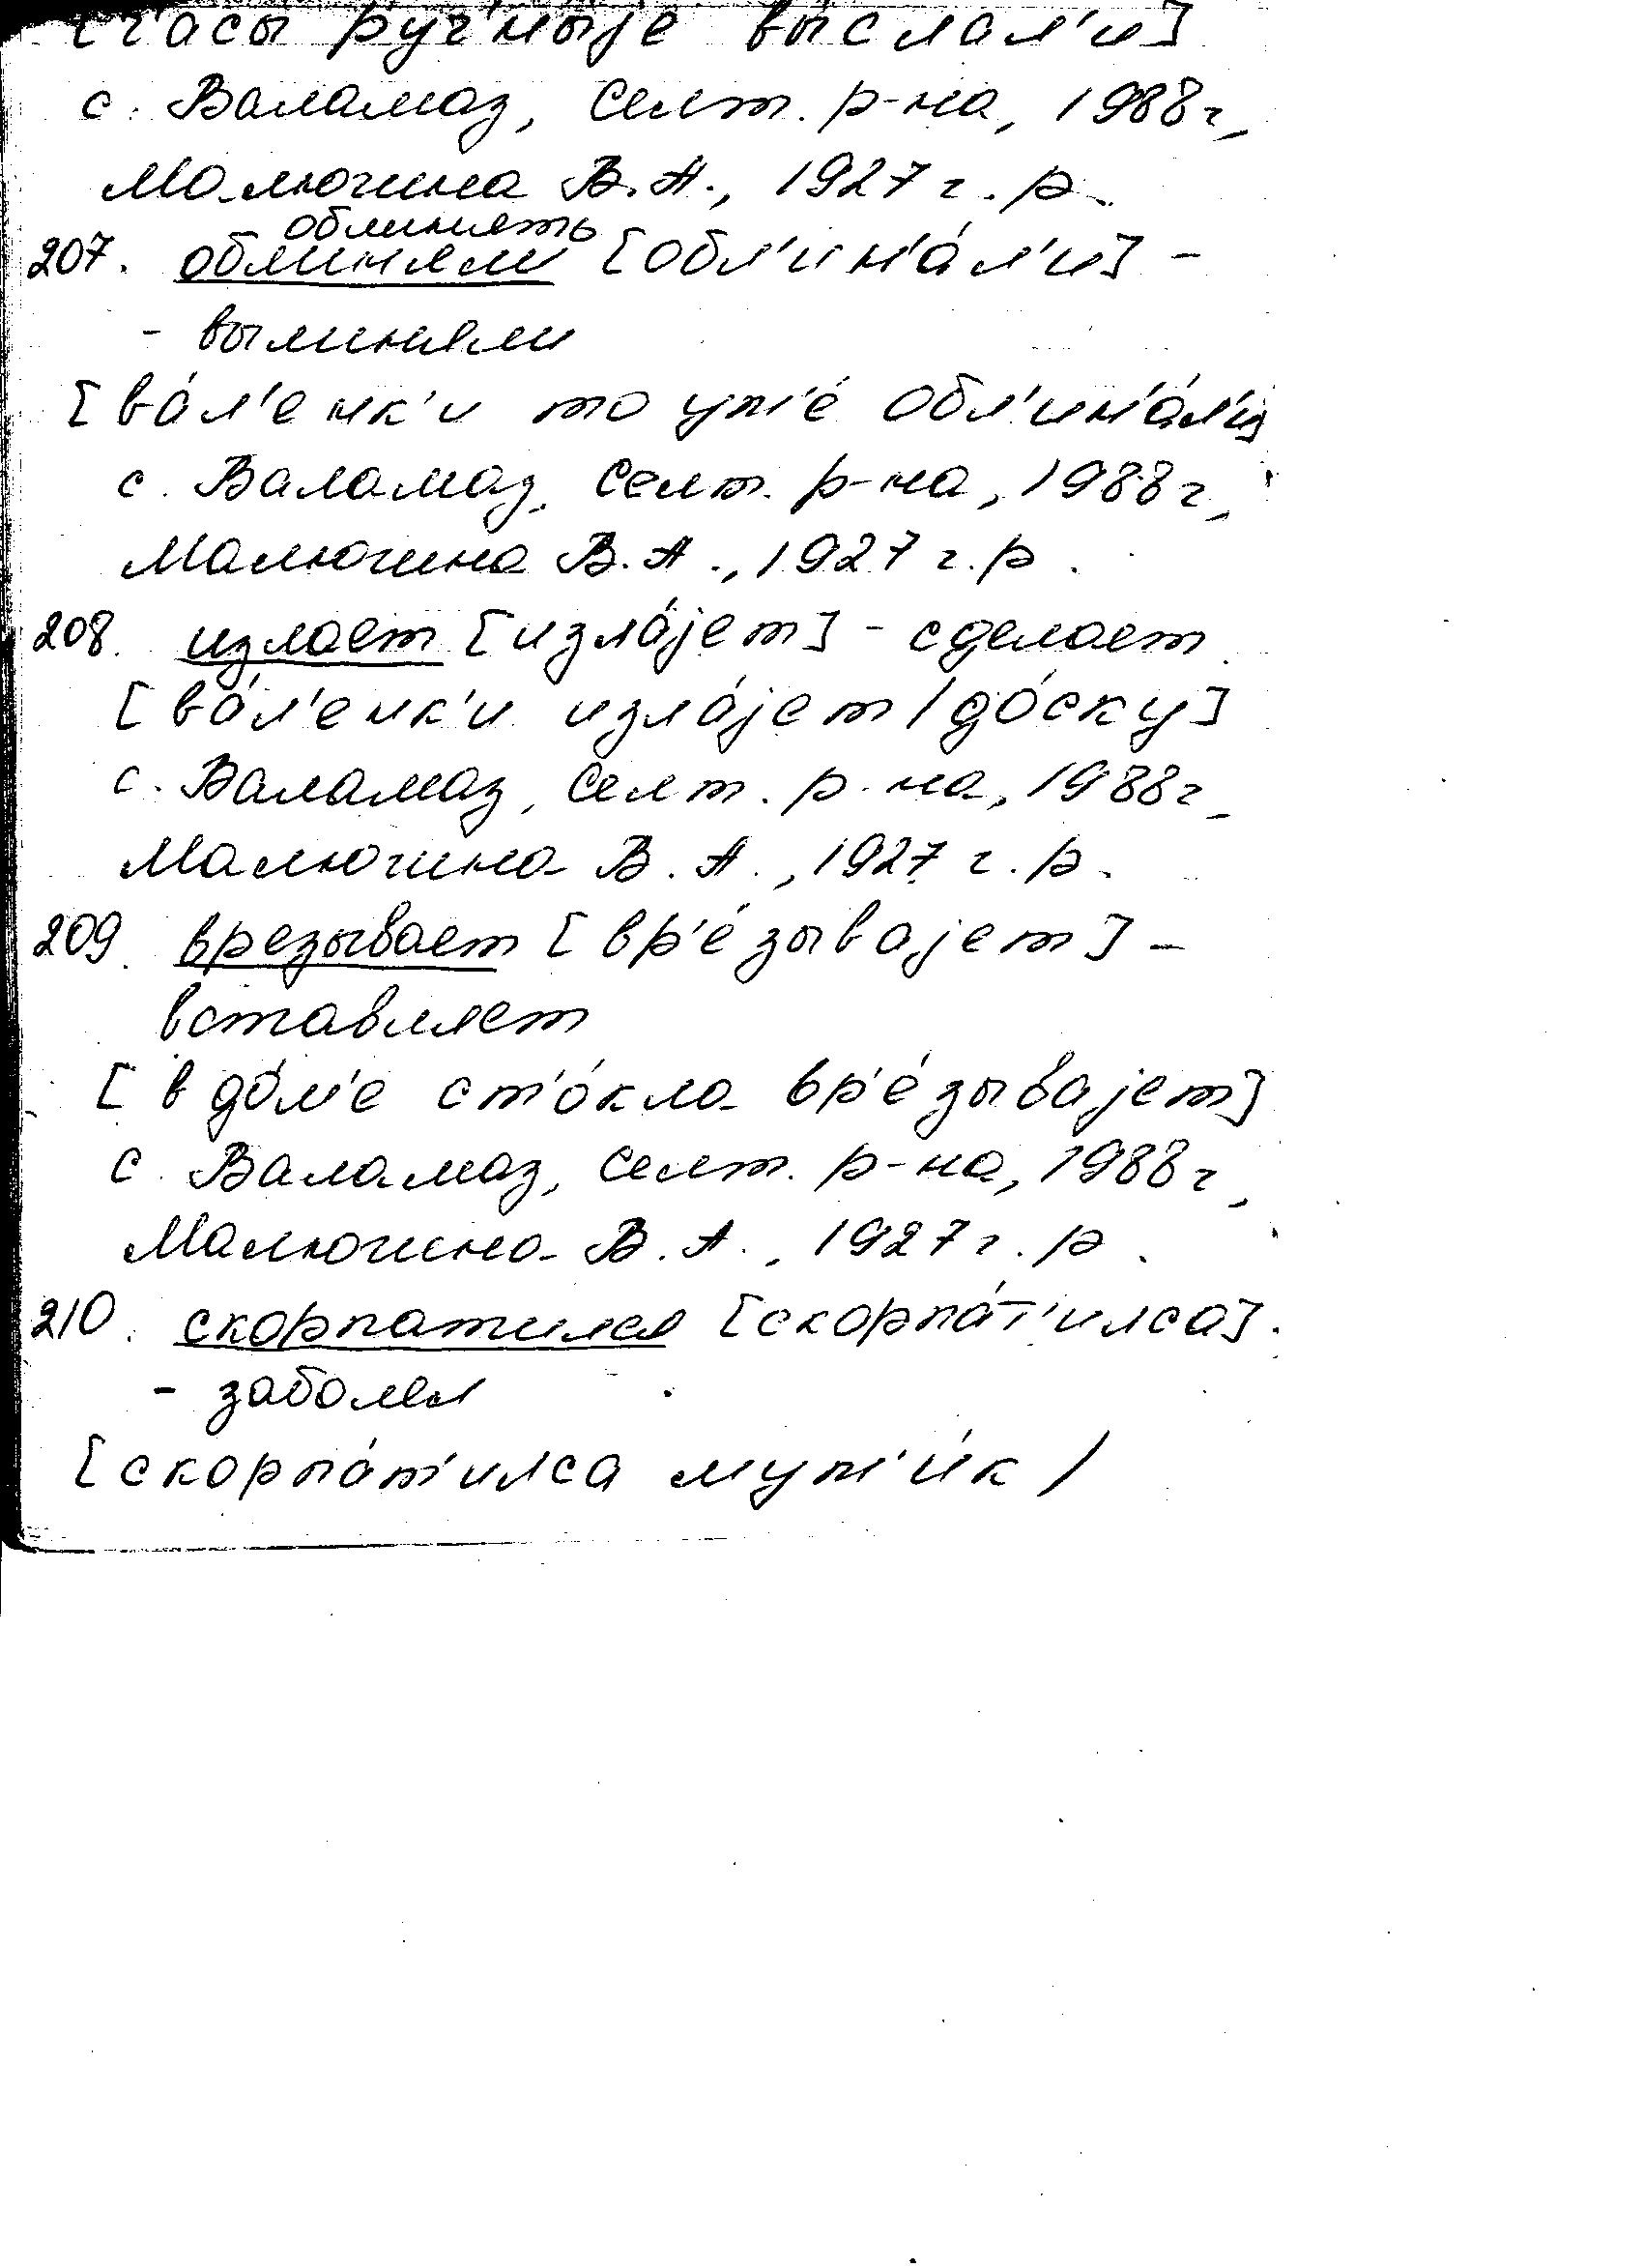 [ч'асы́ руч'ны́jе вы́слал'и]
с. Валамаз, Селт. р-на, 1988 г.,
Малючина В.А., 1927 г.р.
облинять
207. облиняли [обл'ин'а́л'и] -
- вылиняли
[ва́л'енк'и то уж'е́ обл'ин'а́л'и]
с. Валамаз, Селт. р-на, 1988 г.,
Малючина В.А., 1927 г.р.
208. излает [изла́jет] - сделает
[ва́л'енк'и изла́jет / до́ску]
с. Валамаз, Селт. р-на, 1988 г.,
Малючина В.А., 1927 г.р.
209. врезывает [вр'е́зываjет] -
вставляет
[в до́м'е ст'о́кла вр'е́зываjет]
с. Валамаз, Селт. р-на, 1988 г.,
Малючина В.А., 1927 г.р.
210. скорпатился [скорпа́т'илса].
- заболел
[скорпа́т'илса муж'и́к /